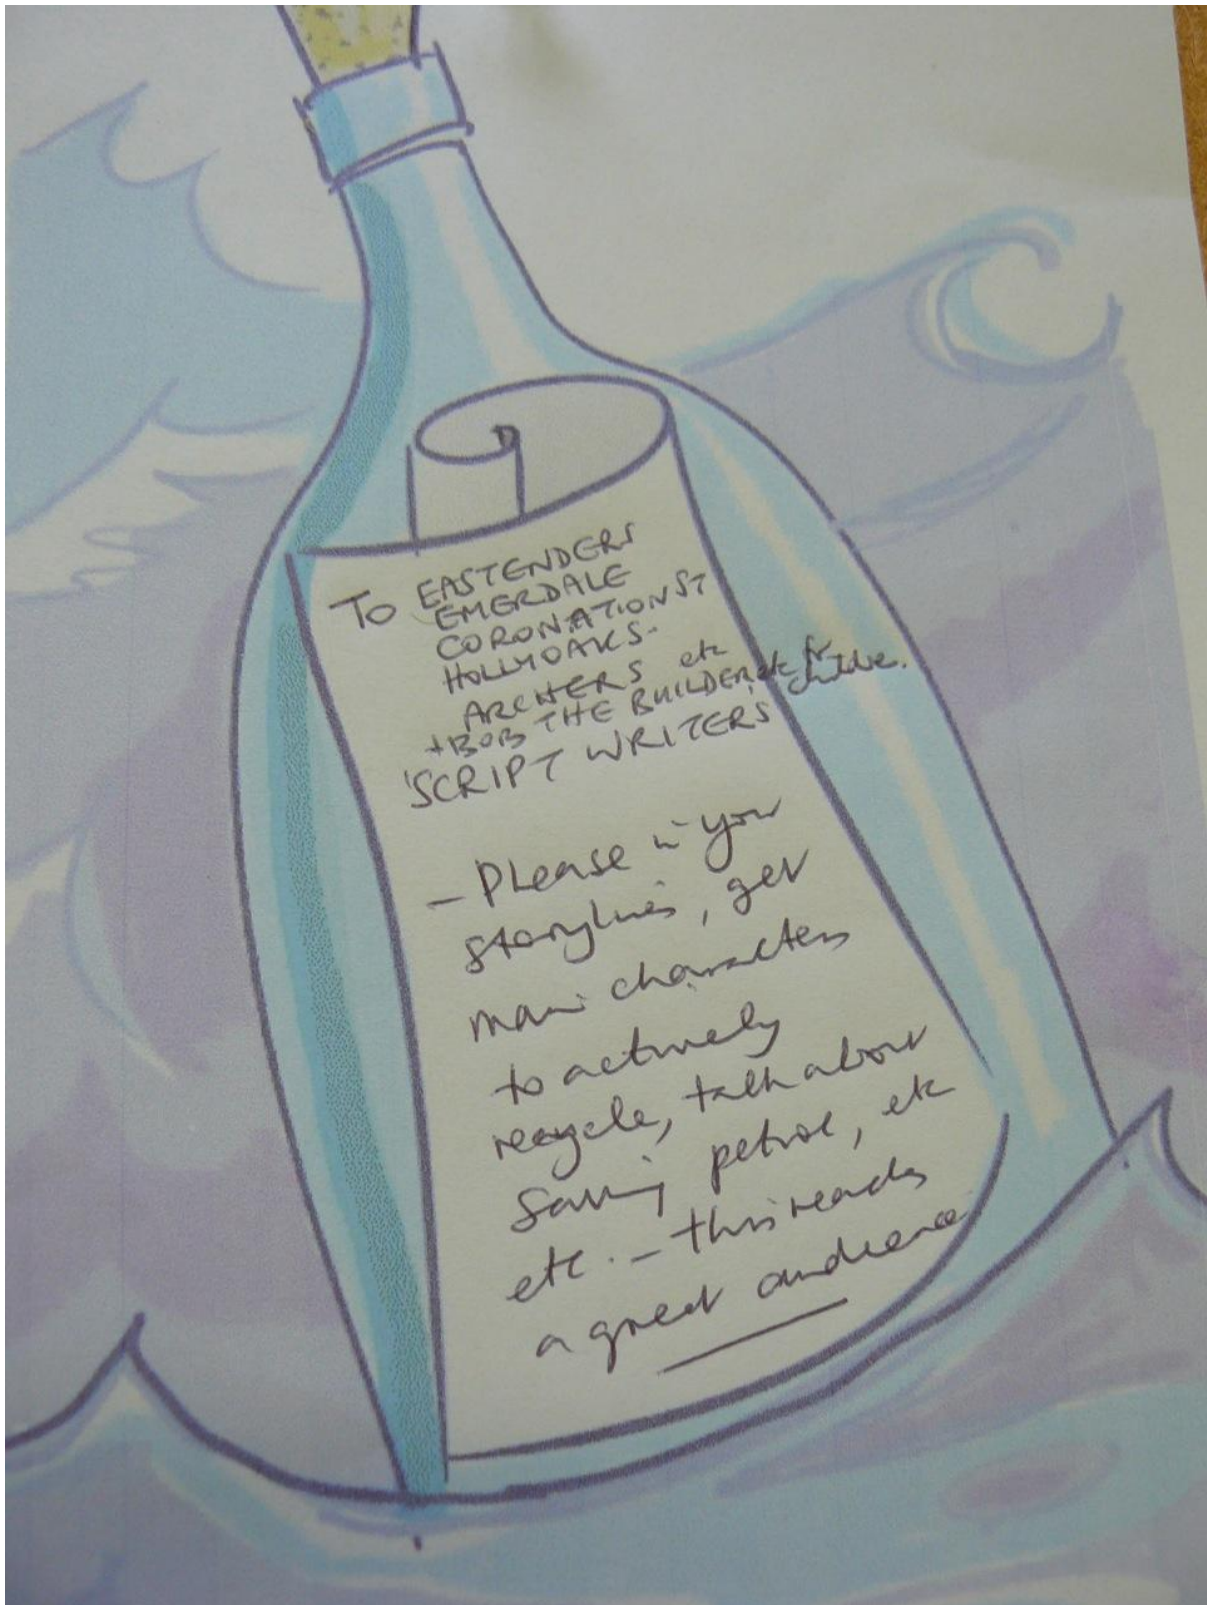 To EASTENDERS
EMERDALE
CORONATION ST
HOLLYOAKS.
ARCHERS etc
+BOB THE BUILDER, etc for children.
'SCRIPT WRITERS
- Please in your
storylines, get
main characters
to actively
recycle, talk about
saving petrol, etc
etc. - this reaches
a great audience